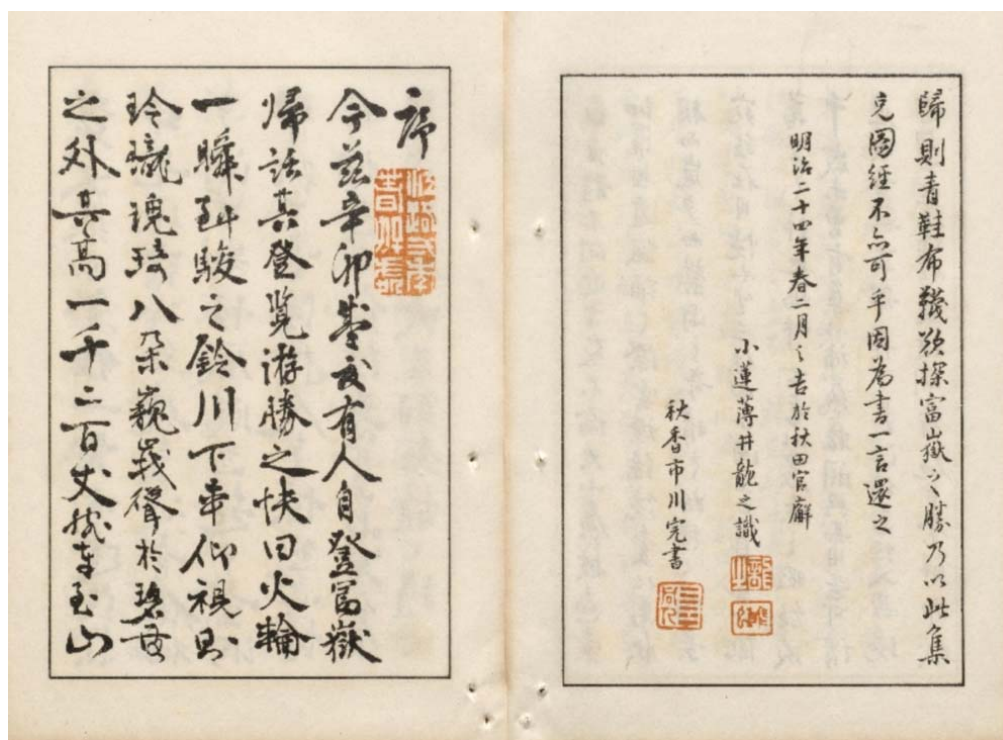 歸則青鞋布韈欲探富嶽之勝乃以此集
充圖經不亦可乎因為書一言還之
明治二十四年春二月之吉於秋田官廨
小蓮薄井龍之識
秋香市川完書
序
今茲辛卯有人自登富嶽
歸話其登覽游勝之快曰火輪
一瞬到駿之鈴川下車仰視則
玲瓏瑰琦八朵巍峩聳於碧
之外其高一千二百丈至山